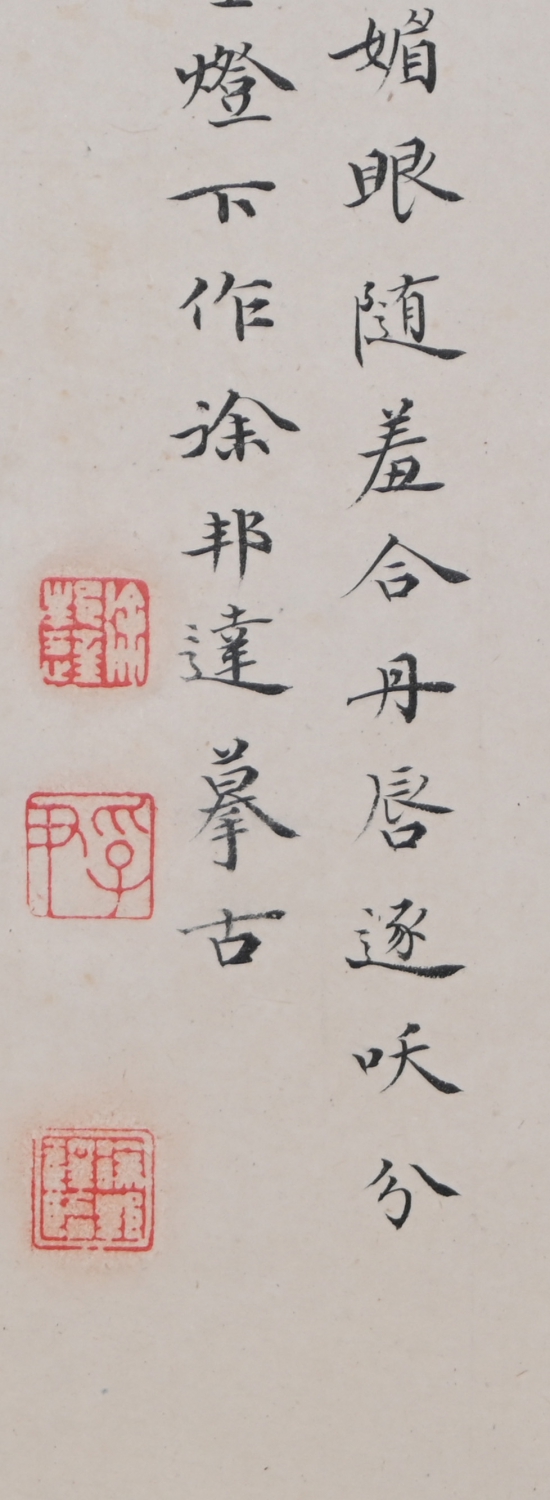 媚眼随羞合丹唇逐㗛分
燈下作涂邦達摹古
徐邦達
孚尹